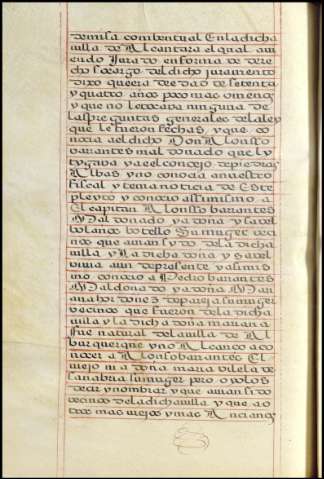 demisa combentual Enladicha
uilla de Alcantara el qual aui
endo Jurado enforma de dere
cho socargo del dicho juramento
dixo queera de edad de setenta
y quatro años poco mas omenos
y que no letocava ninguna de
las preguntas generales delaley
que le fueron fechas, y que co
nocia aeldicho Don Alonsso
barantes mal donado que li
tygava yaelconcejo depiedras
Albas yno conocia anuestro
fiscal y tenia noticia de Este
pleyto y conocio assimismo a
El capitan Alonsso barantes
Maldonado ya doña ysavel
bolaños botello Su muger veci
nos que auian sydo dela dicha
uilla y La dicha doña ysavel
vivia aun depresente yasimis
mo conocio a Pedro barantes
Maldonado ya doña Mari
ana hordones de pareja sumuger
vecinos que fueron dela dicha
uilla y la dicha doña mariana
fue natural delauilla de Al
burquerque yno Alcanço aco
nocer a Alonso barantes El
viejo ni a doña maria vilela de
sanabria sumuger pero oyolos
decir y nombrar y que auian sido
vecinos deladichauilla y que ao
tros mas viejos ymas Ancianos